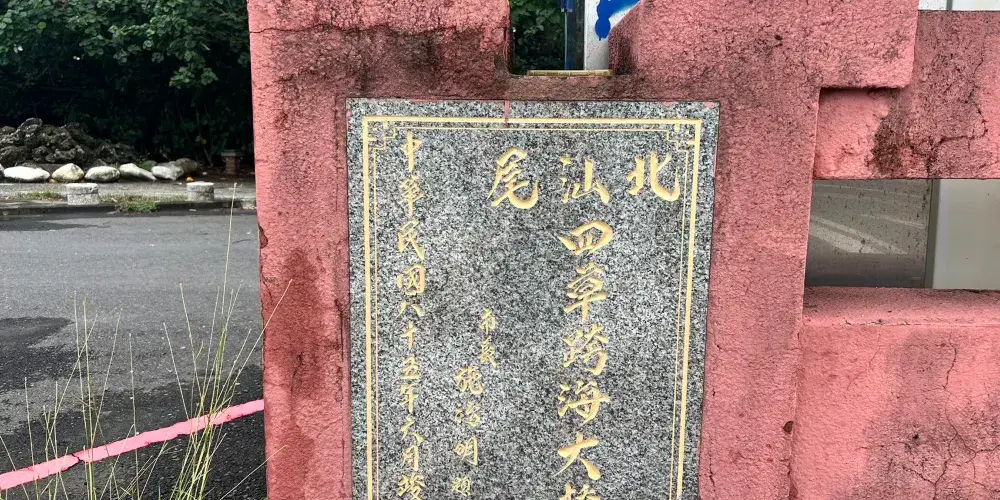 北汕尾
四草跨海大橋
市長 施治明 題
中華民國八十五年六月竣